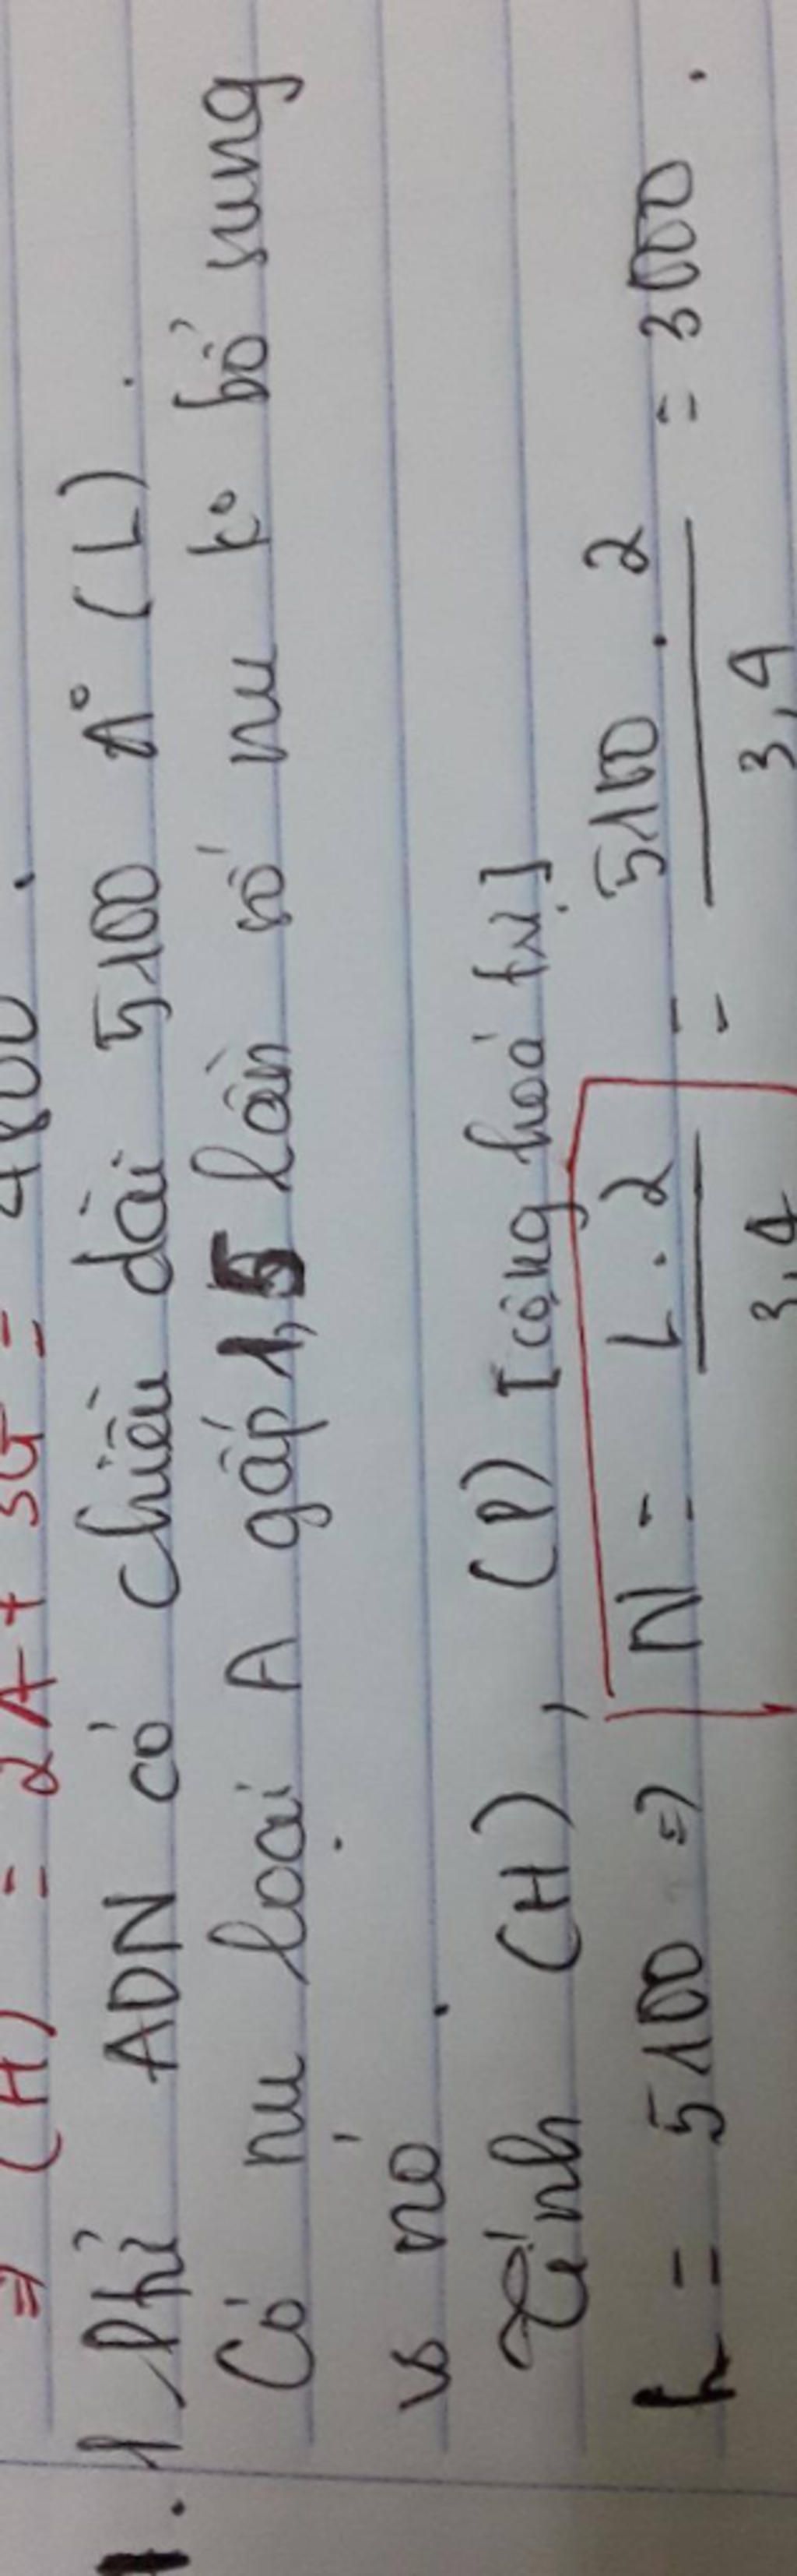 => (H) = 2A + 3G = 4800.
1. 1 Phtử ADN có chiều dài 5100 A° (L).
Có nu loại A gấp 1,5 lần số nu k° bổ sung
vs nó.
Tính (H), (P) [cộng hoá trị]
L = 5100 => N = L . 2 / 3,4 = 5100 . 2 / 3,4 = 3000.